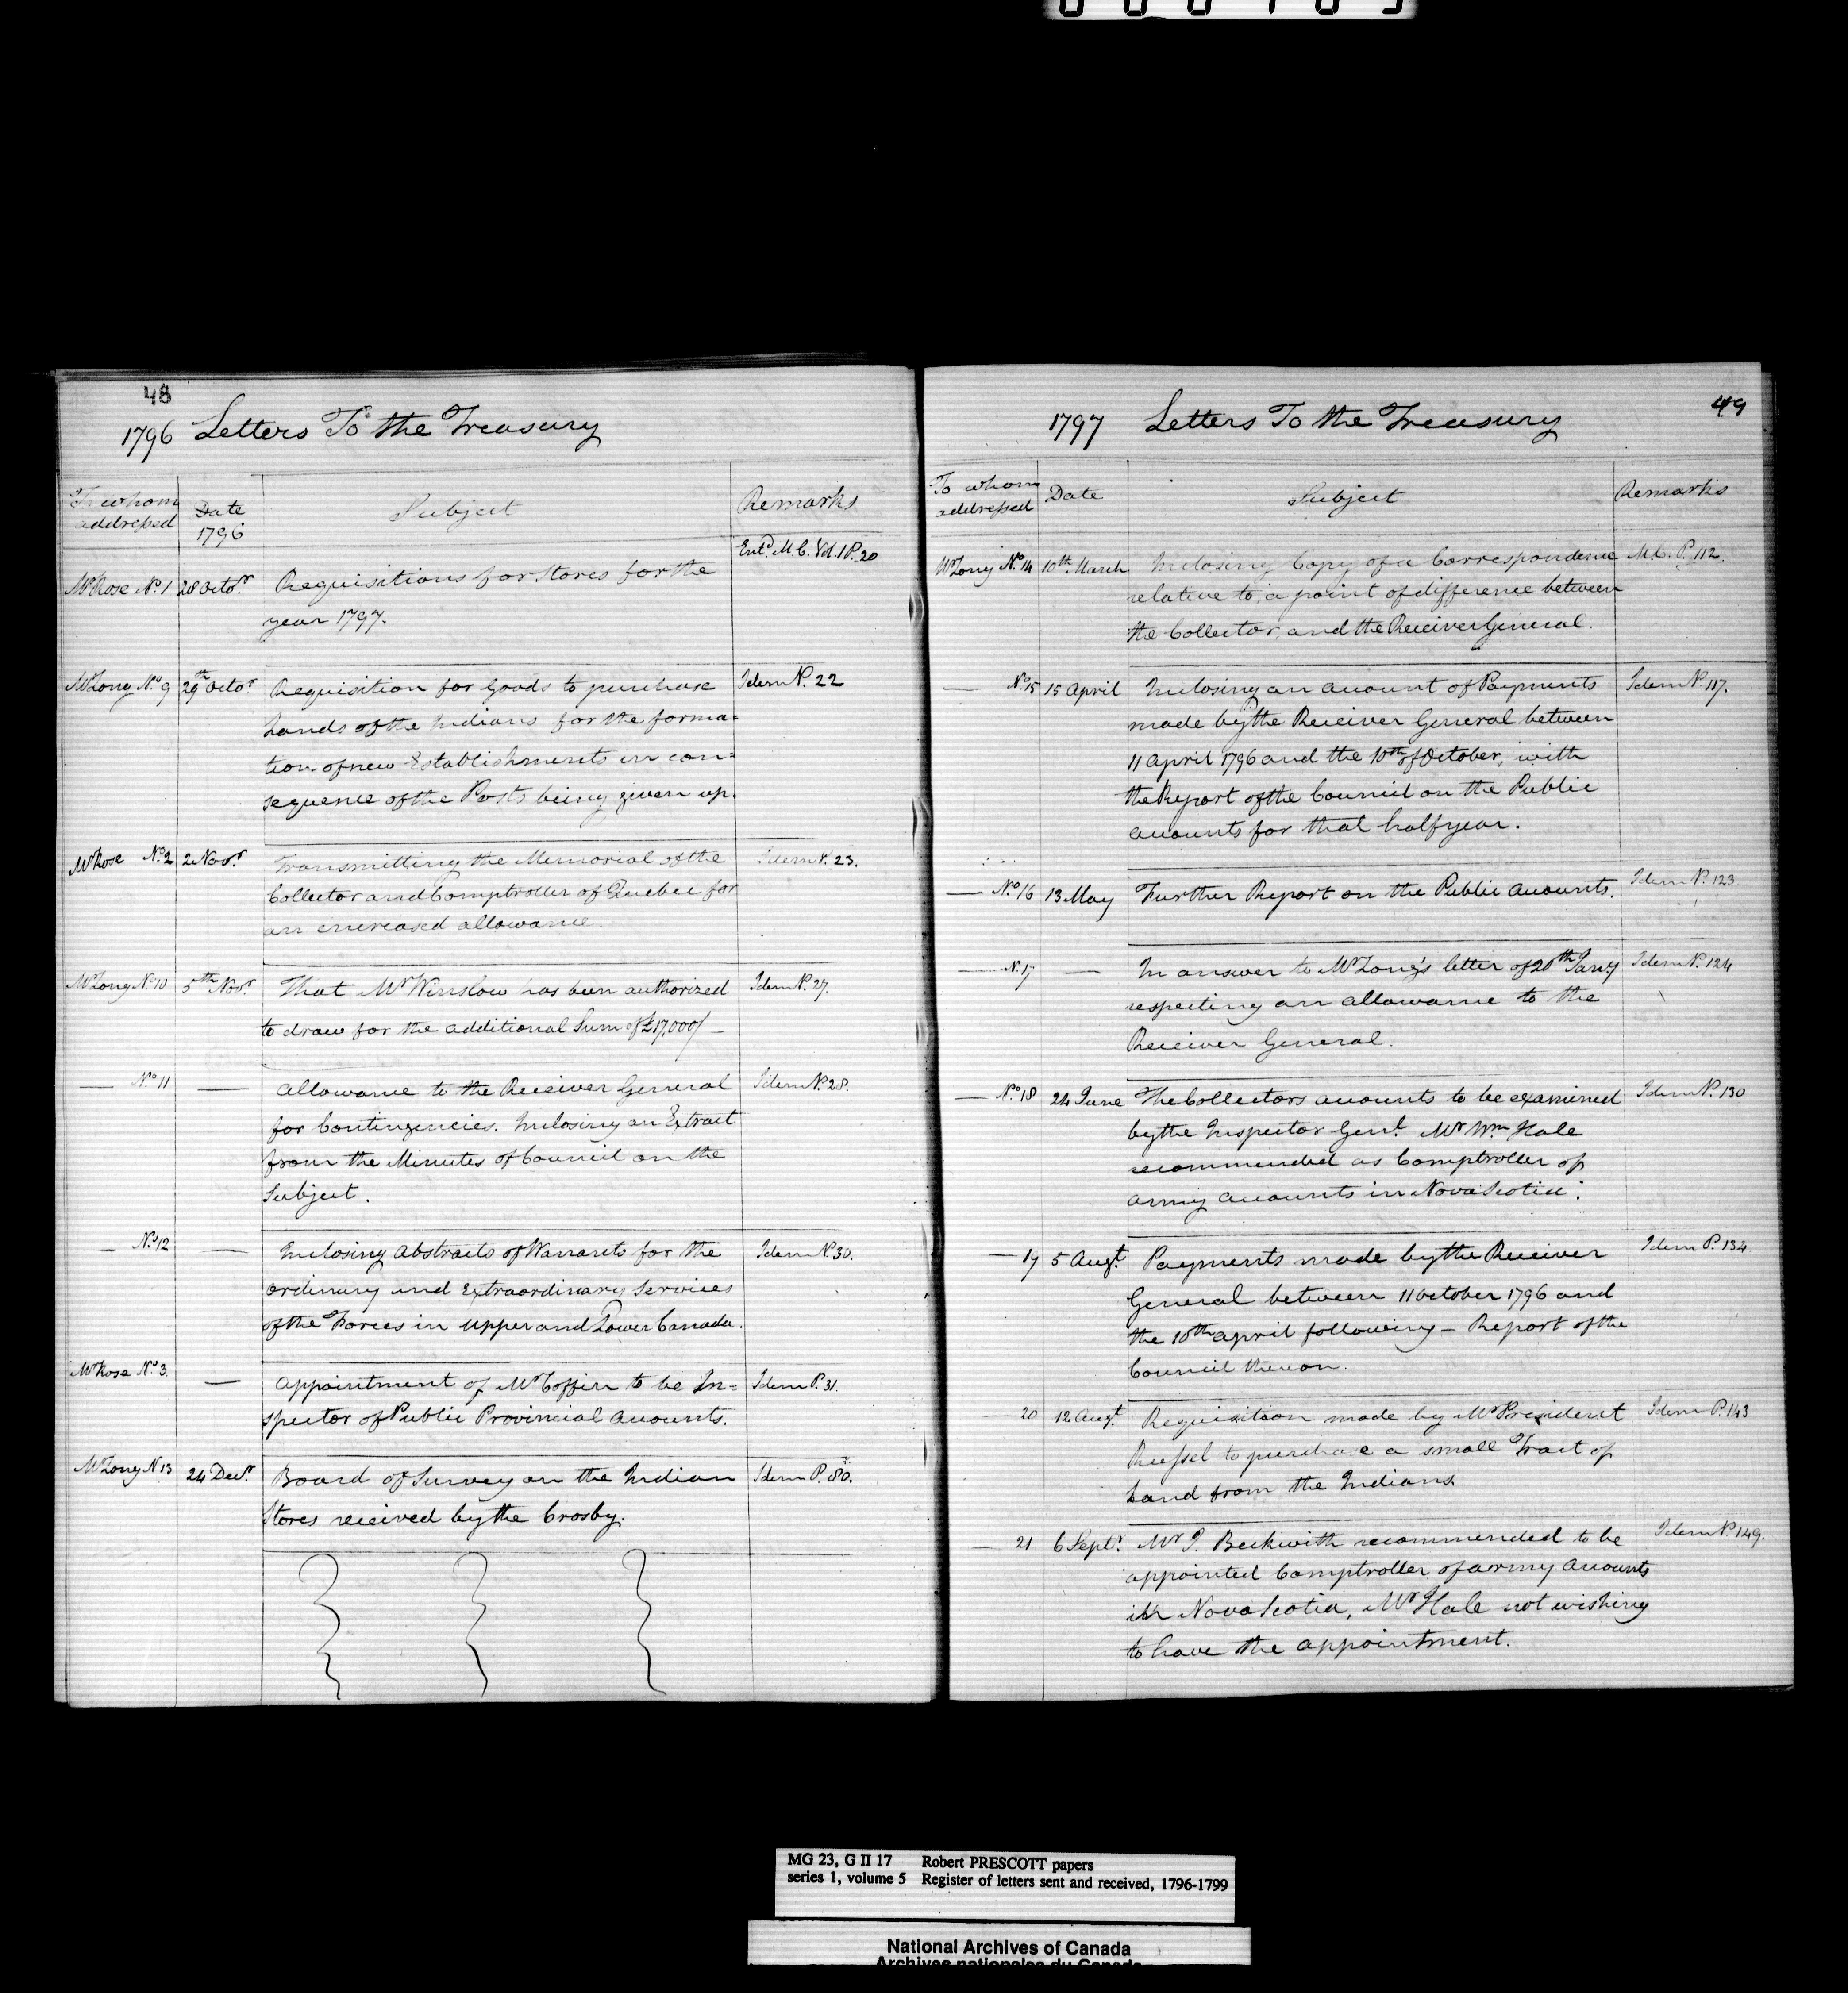 48
1796 Letters To the Treasury
To whom addressed
Date 1796
Subject
Remarks
Mr Rose No. 1 28 Octor. Requisitions for Stores for the Entd. M.C. Vol. 1 P. 20
year 1797.
Mr Long No. 9 29th Octor. Requisition for Goods to purchase Idem P. 22
Lands of the Indians for the forma=
tion of new Establishments in con=
sequence of the Posts being given up.
Mr Rose No. 2 2 Novr. Transmitting the Memorial of the Idem P. 23.
Collector and Comptroller of Quebec for
an encreased allowance.
Mr Long No. 10 5th Novr. That Mr Winslow has been authorized Idem P. 27.
to draw for the additional Sum of £17,000/ —
— No. 11 — Allowance to the Receiver General Idem P. 28.
for Contingencies. Inclosing an Extract
from the Minutes of Council on the
Subject.
— No. 12 — Inclosing Abstracts of Warrants for the Idem P. 30.
Ordinary and Extraordinary Services
of the Forces in Upper and Lower Canada.
Mr Rose No. 3. — Appointment of Mr Coffin to be In= Idem P. 31.
spector of Public Provincial Accounts.
Mr Long N. 13 24 Decr. Board of Survey on the Indian Idem P. 80.
Stores received by the Crosby.
49
1797 Letters To the Treasury
To whom addressed
Date
Subject
Remarks
Mr Long No. 14 10th. March Inclosing Copy of a Correspondence M.C. P. 112.
relative to a point of difference between
the Collector, and the Receiver General.
— No. 15 15 April Inclosing an account of Payments Idem P. 117.
made by the Receiver General between
11 April 1796 and the 10th of October, with
the Report of the Council on the Public
accounts for that half year.
— No. 16 13 May Further Report on the Public Accounts. Idem P. 123
— N. 17 — In answer to Mr Long's letter of 20th Jany Idem P. 124
respecting an allowance to the
Receiver General.
— No. 18 24 June The Collectors accounts to be examined Idem P. 130
by the Inspector Genl. Mr Wm Hale
recommended as Comptroller of
Army accounts in Nova Scotia.
— 19 5 Augt. Payments made by the Receiver Idem P. 134.
General between 11 October 1796 and
the 10th April following — Report of the
Council thereon.
— 20 12 Augt. Requisition made by Mr President Idem P. 143
Russel to purchase a small Tract of
Land from the Indians.
— 21 6 Septr. Mr J. Beckwith recommended to be Idem P. 149.
appointed Comptroller of army Accounts
in Nova Scotia, Mr Hale not wishing
to have the appointment.
MG 23, G II 17 Robert PRESCOTT papers
series 1, volume 5 Register of letters sent and received, 1796-1799
National Archives of Canada
Archives nationales du Canada